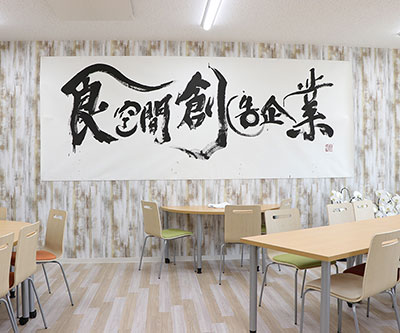 食空間創造企業